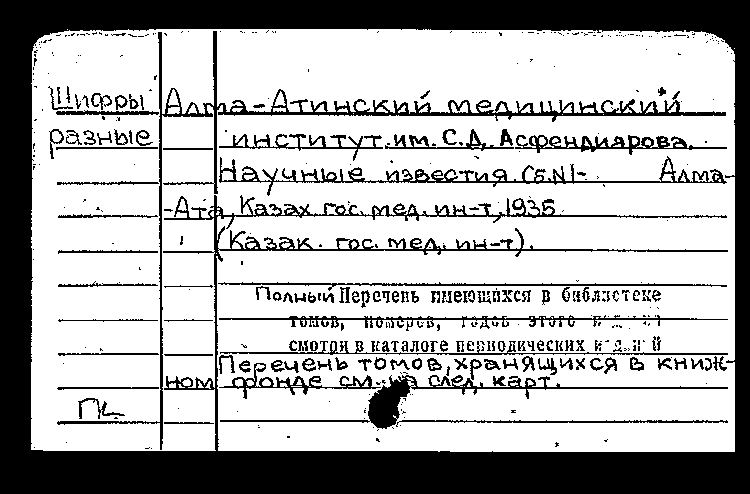 Шифры Алма-Атинский медицинский
разные институт им. С.Д. Асфендиярова.
Научные известия. Сб.N1- Алма-
-Ата, Казах. гос. мед. ин-т, 1935
(Казак. гос. мед. ин-т).
Полный Перечень имеющихся в библиотеке
томов, номеров, годов этого
смотри в каталоге периодических изданий
Перечень томов, хранящихся в книж-
ном фонде см. на след. карт.